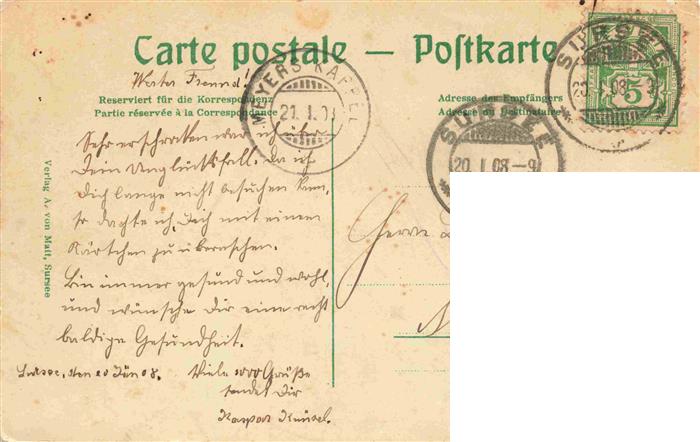 Carte postale — Postkarte
Werter Freund!
Reserviert für die Korrespondenz
Partie réservée à la Correspondance
Adresse des Empfängers
Adresse du Destinataire
Sehr erschrocken war ich über
Dein Unglücksfall. Da ich
Dich lange nicht besuchen kann,
so dachte ich, Dich mit einem
Kärtchen zu überraschen.
Bin immer gesund und wohl,
und wünsche Dir eine recht
baldige Gesundheit.
Sursee, den 20 Jän 08.
Viele 1000 Grüße
sendet Dir
Kaspar
Herrn
Verlag A. von Matt, Sursee
MEYERSKAPPEL
21. I. 0
SURSEE
20. I. 08 — 9
SURSEE
5